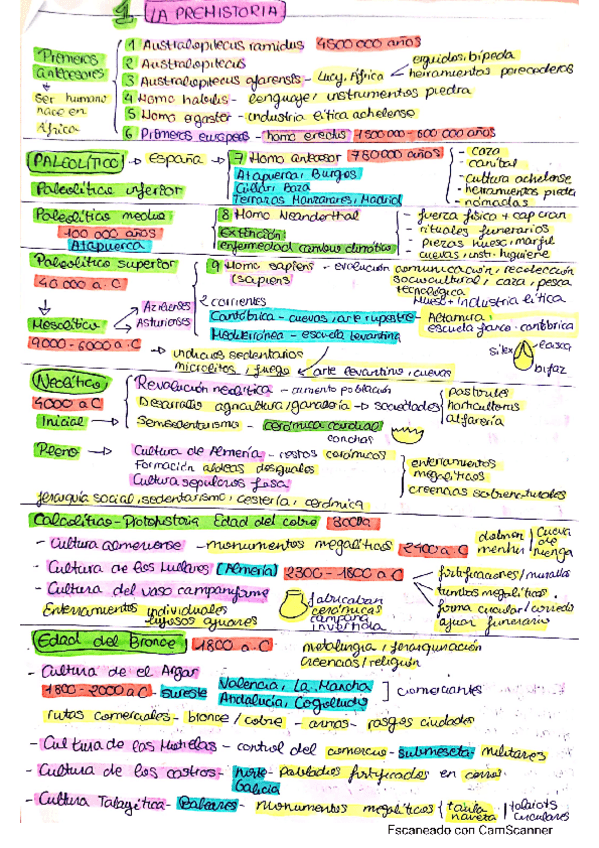 1 LA PREHISTORIA
Primeros antecesores
↓
ser humano nace en África
1 Australopitecus ramidus 4500 000 años
2 Australopitecus
3 Australopitecus afarensis - Lucy, África < erguidos, bípeda
herramientas perecederas
4 Homo habilis - lenguaje, instrumentos piedra
5 Homo ergaster - industria lítica achelense
6 Primeros europeos - homo erectus 1500 000 - 600 000 años
PALEOLÍTICO → España → 7 Homo antecesor 780 000 años
Paleolítico inferior
Atapuerca, Burgos
Cúllar, Baza
Terrazas Manzanares, Madrid
- caza
- caníbal
- cultura achelense
- herramientas piedra
- nómadas
Paleolítico medio
100 000 años
Atapuerca
8 Homo Neanderthal
Extinción:
enfermedad cambios climáticos
- fuerza física + cap cran
- rituales funerarios
- piezas hueso, marfil
- cuevas, inst. higuiene
Paleolítico superior
40 000 a.C
9 Homo sapiens - evolución
(sapiens)
comunicación, recolección
sociocultural, caza, pesca
tecnológica
hueso + industria lítica
2 corrientes
Cantábrica - cuevas, arte rupestre - Altamura
escuela franco-cantábrica
Mediterránea - escuela levantina
↓
Mesolítico → Azilienses
Asturienses
9000 - 6000 a.C
→ indicios sedentarios
microlitos, fuego < arte levantino, cuevas
silex
lasca
bifaz
Neolítico
4000 a.C
Inicial →
Revolución neolítica - aumento población
Desarrollo agricultura/ganadería → sociedades
pastoriles
horticultoras
alfarería
Semisedentarismo - cerámica cardial
conchas
Pleno →
Cultura de Almería - restos cerámicos
Formación aldeas desiguales
Cultura sepulcros fosa
enterramientos
megalíticos
creencias sobrenaturales
Jerarquía social, sedentarismo, cestería, cerámica
Calcolítico - Protohistoria Edad del cobre 3000a
- Cultura almeriense - monumentos megalíticos 2400 a.C
dolmen
menhir
Cueva de Menga
- Cultura de los Millares (Almería) 2300 - 1800 a.C
fortificaciones/murallas
tumbas megalíticas
forma circular/corredor
ajuar funerario
- Cultura del vaso campaniforme
Enterramientos individuales
lujosos ajuares
fabricaban
cerámicas
campana
invertida
Edad del Bronce 1800 a.C
metalurgia / jerarquización
creencias / religión
- Cultura de el Argar
1800 - 2000 a.C - sureste
Valencia, La Mancha
Andalucía, Cogolludo
] comerciantes
rutas comerciales - bronce/cobre - armas - rasgos ciudades
- Cultura de las Motillas - control del comercio - submeseta militares
- Cultura de los castros - Norte - poblados fortificados en cimas
Galicia
- Cultura Talayótica - Baleares - monumentos megalíticos
taula
naveta
talaiots
circulares
Escaneado con CamScanner